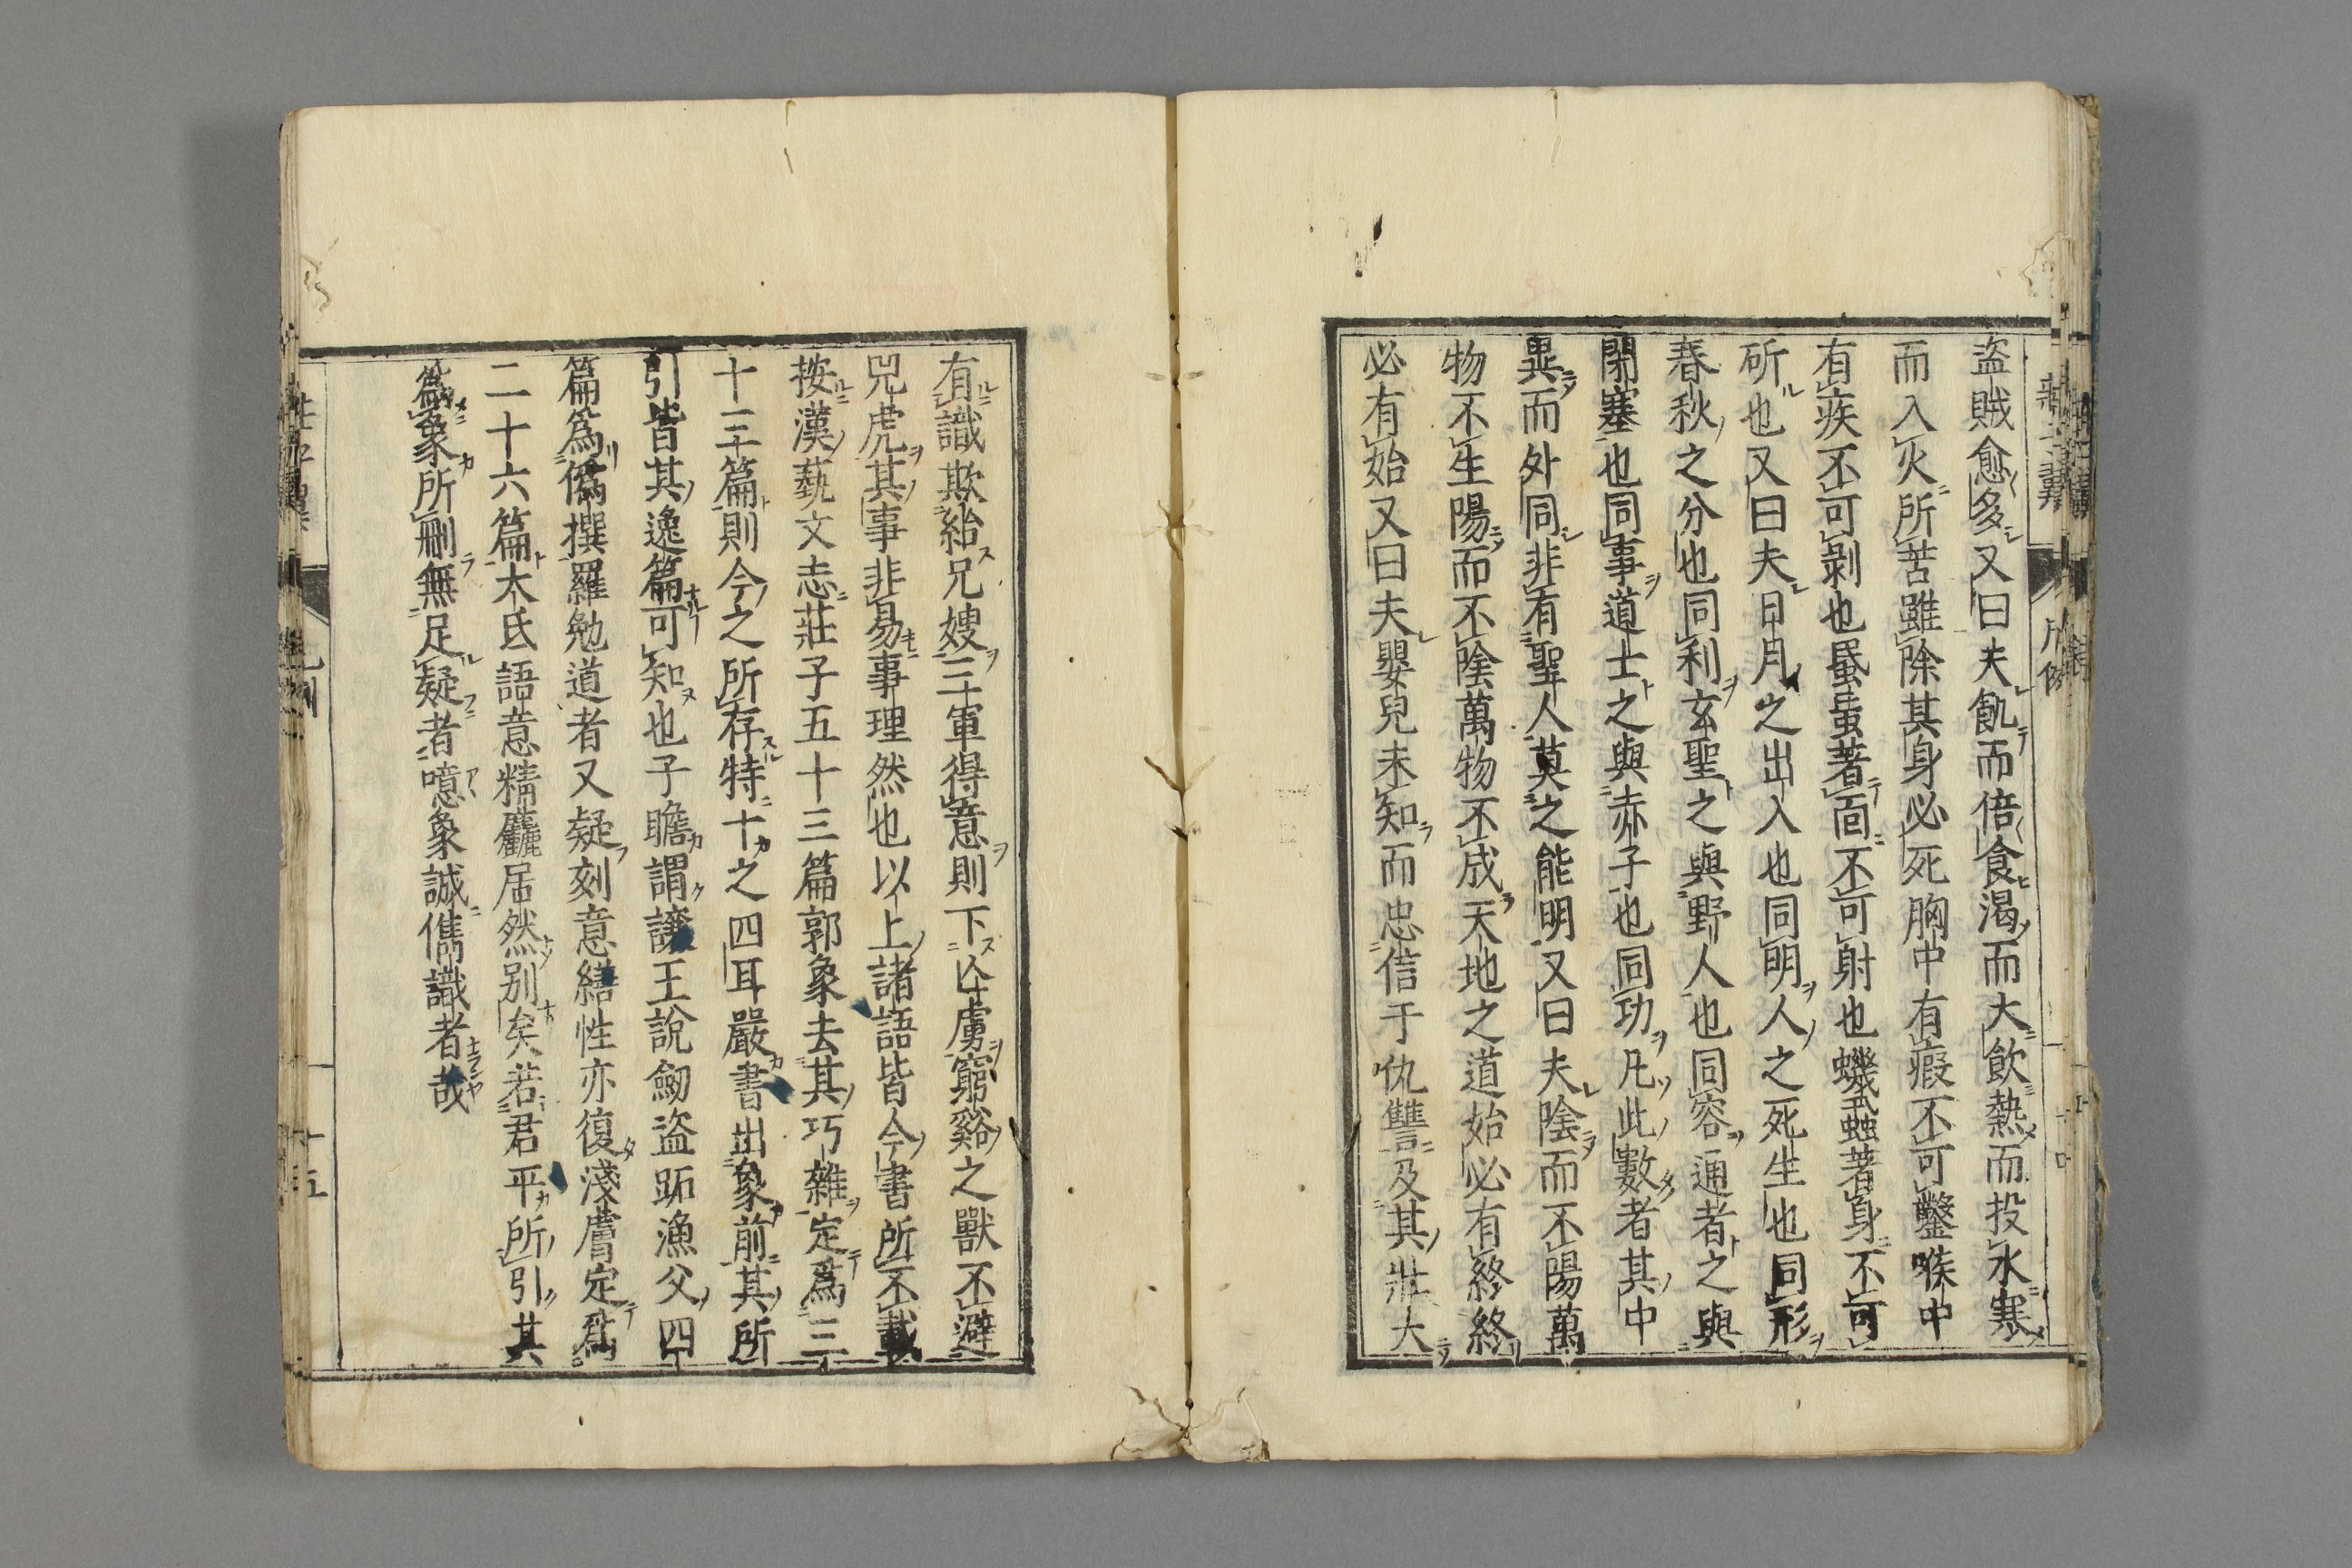 盗賊愈多又曰夫飢而倍食渇而大飲熱而投水寒
而入火所苦雖除其身必死胸中有瘕不可鑿喉中
有疾不可剥也蚤虱著面不可射也蟣蝨著身不可
斫也又曰夫日月之出入也同明人之死生也同形
春秋之分也同利玄聖之與野人也同容通者之與
閉塞也同事道士之與赤子也同功凡此數者其中
異而外同非有聖人莫之能明又曰夫陰而不陽萬
物不生陽而不陰萬物不成天地之道始必有終終
必有始又曰夫嬰兒未知而忠信于仇讐及其壯大
有識欺紿兄嫂三軍得意則下亽虜窮谿之獸不避
兕虎其事非易事理然也以上諸語皆今書所不載
按漢藝文志莊子五十三篇郭象去其巧雜定爲三
十三篇則今之所存特十之四耳嚴書出象前其所
引皆其逸篇可知也子瞻謂讓王說劒盗跖漁父四
篇爲僞撰羅勉道者又疑刻意繕性亦復淺膚定爲
二十六篇大氐語意精麤居然别矣若君平所引其
爲象所刪無足疑者噫象誠儁識者哉